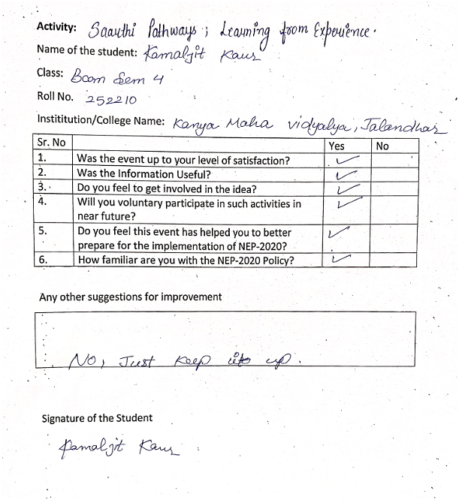 Activity: Saauthi Pathways ; Learning from Experience.
Name of the student: Kamaljit Kaur
Class: Bcom Sem 4
Roll No. 252210
Instititution/College Name: Kanya Maha vidyalya, Jalandhar
Sr. No Yes No
1. Was the event up to your level of satisfaction? ✓
2. Was the Information Useful? ✓
3. Do you feel to get involved in the idea? ✓
4. Will you voluntary participate in such activities in ✓
near future?
5. Do you feel this event has helped you to better ✓
prepare for the implementation of NEP-2020?
6. How familiar are you with the NEP-2020 Policy? ✓
Any other suggestions for improvement
No, Just keep it up.
Signature of the Student
Kamaljit Kaur